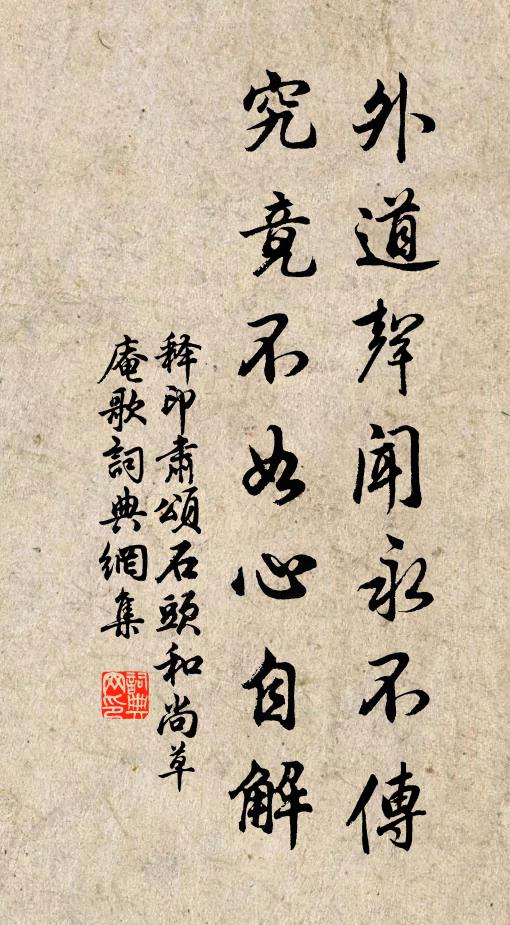 外道聲聞永不傳
究竟不如心自解
释印肃頌石頭和尚草
庵歌詞典網集
詞典网印